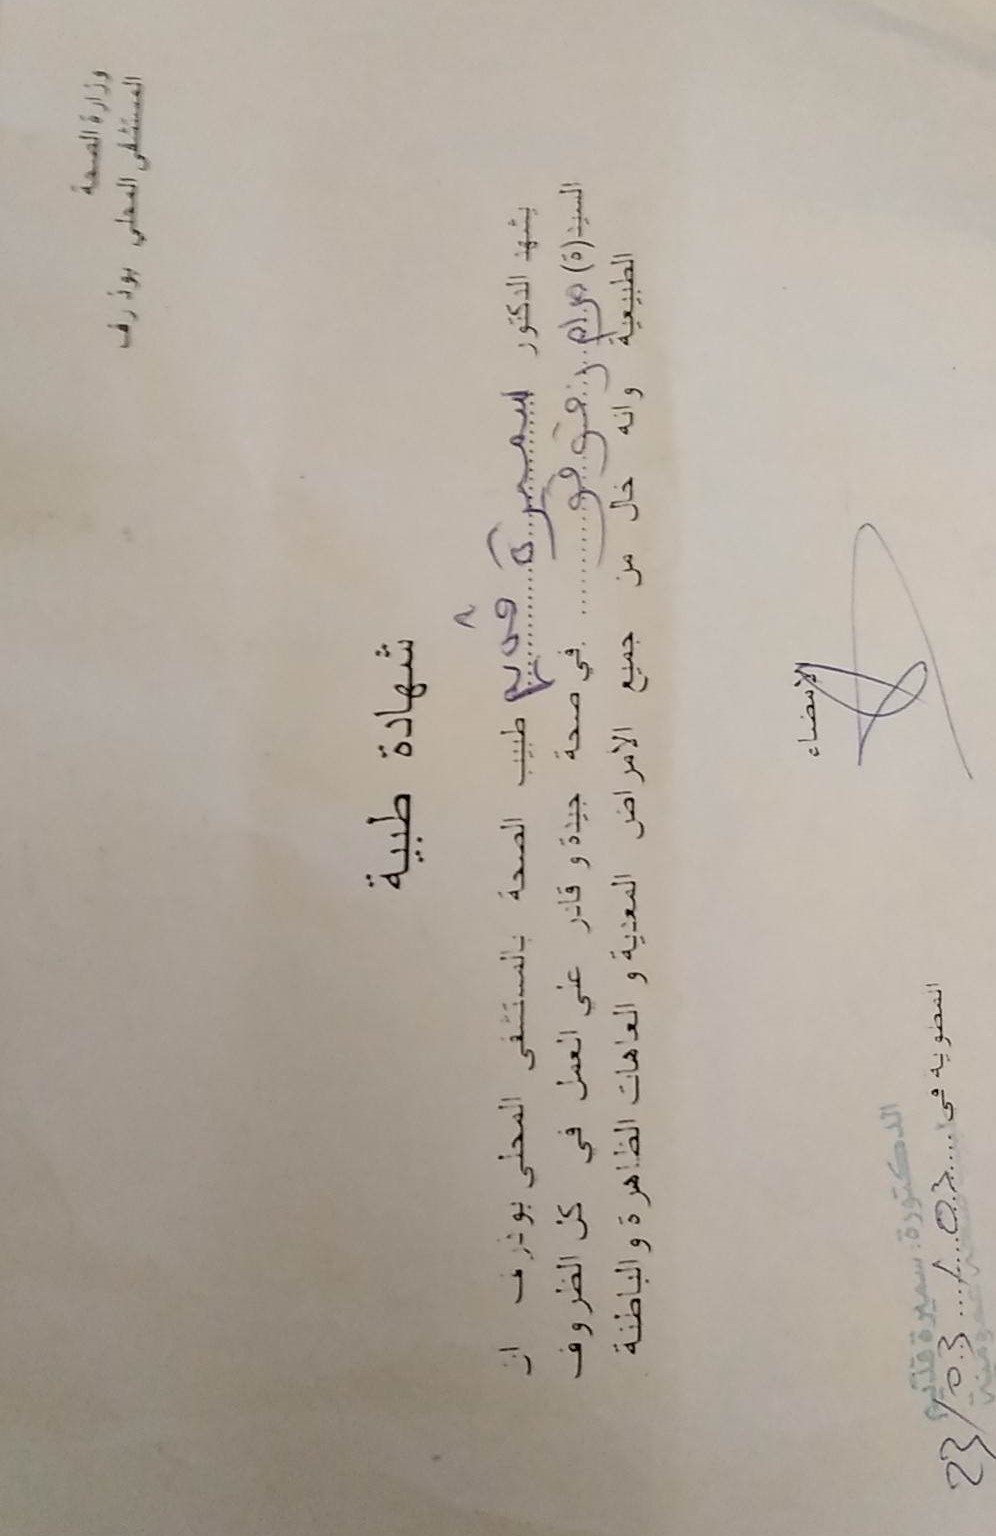 وزارة الصحة
المستشفى المحلي بوذرف
شهادة طبية
يشهد الدكتور سميرة قديم طبيب الصحة بالمستشفى المحلي بوذرف ان
السيد(ة) مرام زعفوف في صحة جيدة و قادر علي العمل في كل الظروف
الطبيعية وانه خال من جميع الامراض المعدية و العاهات الظاهرة والباطنة
الامضاء
المطوية في
الدكتورة: سميرة قديم